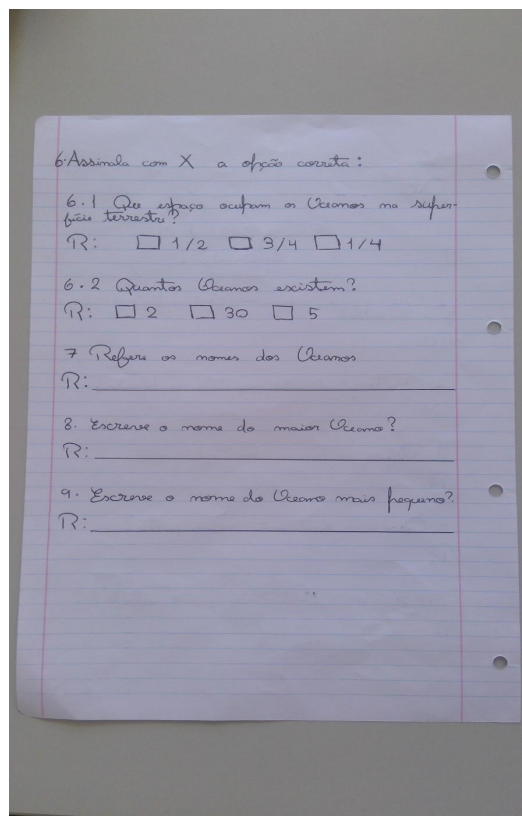 6. Assinala com X a opção correta:
6.1 Que espaço ocupam os Oceanos na super-
fície terrestre?
R: 1/2 3/4 1/4
6.2 Quantos Oceanos existem?
R: 2 30 5
7 Refere os nomes dos Oceanos
R:
8. Escreve o nome do maior Oceano?
R:
9. Escreve o nome do Oceano mais pequeno?
R: